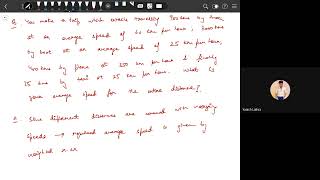 Q. You make a trip which entails travelling 900 km by train
at an average speed of 60 km per hour, 3000 km
by boat at an average speed of 25 km per hour,
400 km by plane at 350 km per hour & finally
15 km by taxi at 25 km per hour. What is
your average speed for the entire distance?
A. Since different distances are covered with varying
speeds → required average speed is given by
weighted H.M